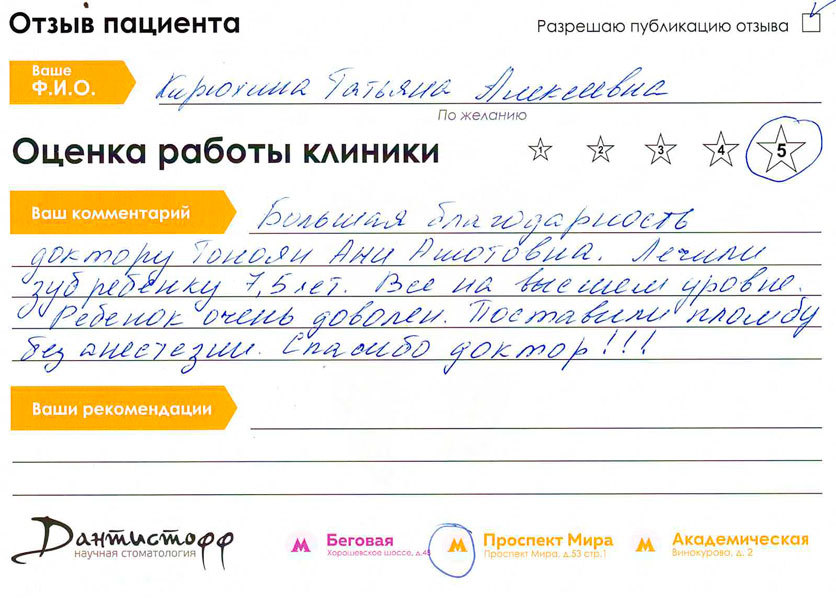 Отзыв пациента
Разрешаю публикацию отзыва
Ваше
Ф.И.О.
Кирюхина Татьяна Алексеевна
По желанию
Оценка работы клиники
1 2 3 4 5
Ваш комментарий
Большая благодарность
доктору Тоноян Ани Ашотовна. Лечили
зуб ребенку 7,5 лет. Все на высшем уровне.
Ребенок очень доволен. Поставили пломбу
без анестезии. Спасибо доктор!!!
Ваши рекомендации
Дантистофф
научная стоматология
Беговая
Хорошевское шоссе, д.48
Проспект Мира
Проспект Мира, д.53 стр.1
Академическая
Винокурова, д. 2